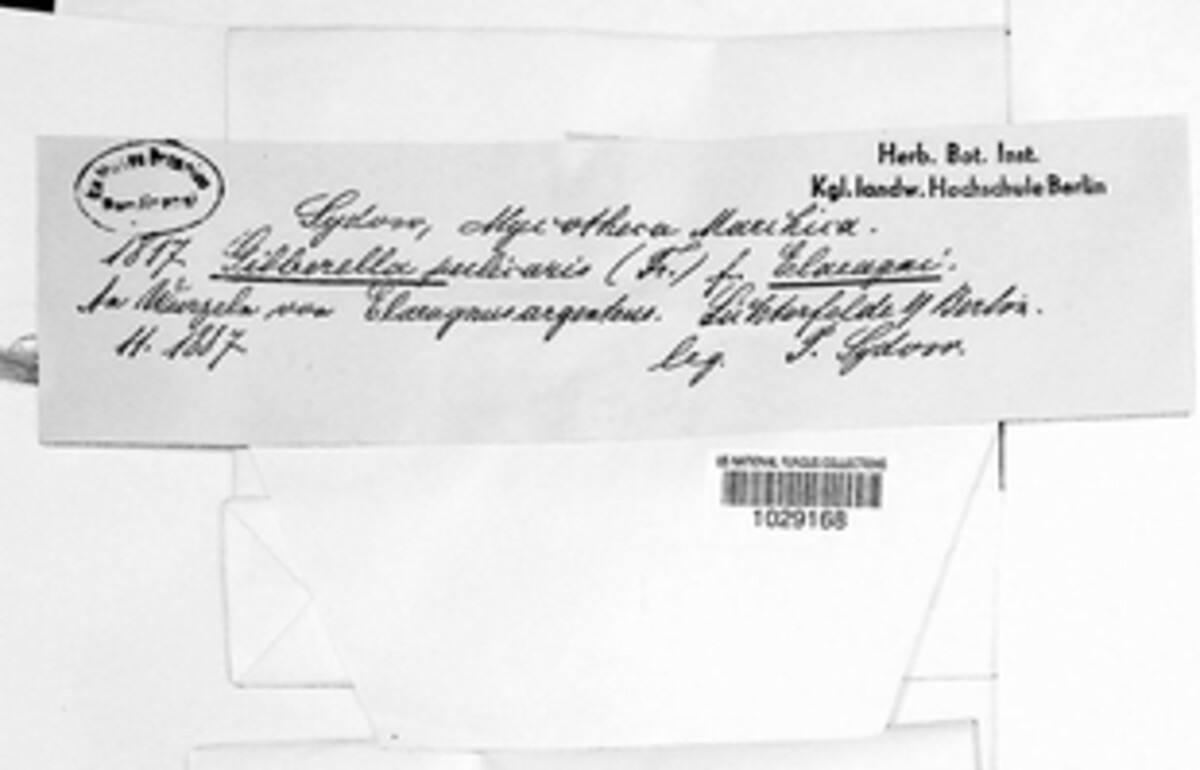 Herb. Bot. Inst.
Kgl. landw. Hochschule Berlin
Sydow, Mycotheca Marchica.
1887 Gibberella pulicaris (Fr.) f. Elaeagni.
An Wurzeln von Elaeagnus argenteus. Lichterfelde b/ Berlin.
4. 1887 leg. P. Sydow.
US NATIONAL FUNGUS COLLECTIONS
1029168